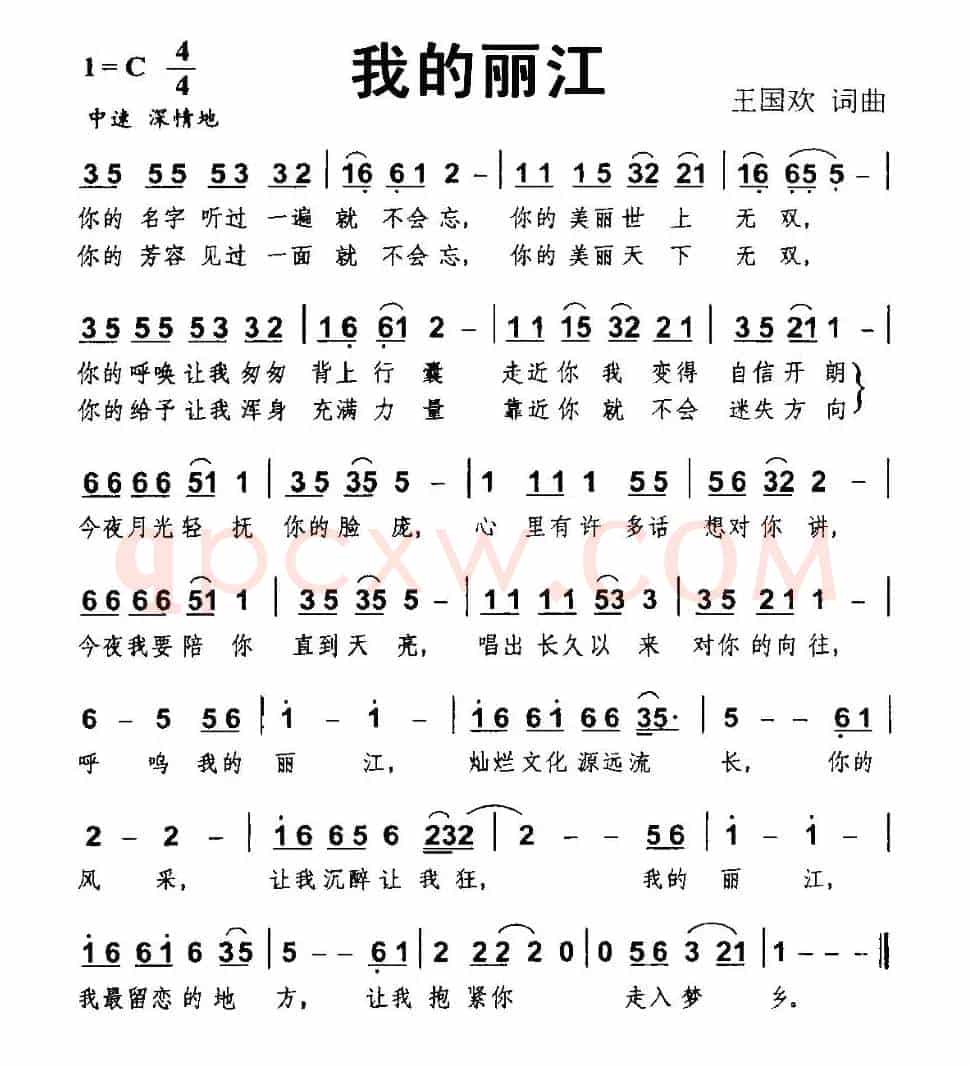 我的丽江
1=C 4/4
中速 深情地
王国欢 词曲
35 55 53 32 | 16 61 2 – | 11 15 32 21 | 16 65 5 – |
你的 名字 听过 一遍 就 不会忘, 你的美丽世 上 无 双,
你的 芳容 见过 一面 就 不会忘, 你的美丽天 下 无 双,
35 55 53 32 | 16 61 2 – | 11 15 32 21 | 35 21 1 – |
你的呼唤让我匆匆 背上行 囊 走近你 我 变得 自信开 朗
你的给予让我浑身 充满力 量 靠近你 就 不会 迷失方 向
66 66 51 1 | 35 35 5 – | 1 11 1 55 | 56 32 2 – |
今夜月光轻 抚 你的脸 庞, 心 里有 许 多话 想对你 讲,
66 66 51 1 | 35 35 5 – | 11 11 53 3 | 35 21 1 – |
今夜我要陪 你 直到天 亮, 唱出 长久以 来 对你 的向往,
6 – 5 56 | i – i – | i6 6i 66 35· | 5 – – 61 |
呼 呜 我的 丽 江, 灿烂文化 源远流 长, 你的
2 – 2 – | i6 65 6 232 | 2 – – 56 | i – i – |
风 采, 让我沉醉让 我 狂, 我的 丽 江,
i6 6i 6 35 | 5 – – 61 | 2 22 2 0 | 0 56 3 21 | 1 – – – ‖
我最留恋的 地 方, 让我 抱 紧你 走入 梦 乡。
qpcxw.COM